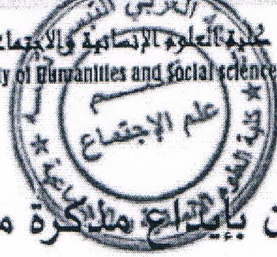 العربي التبسي
كلية العلوم الإنسانية والاجتماع
ty of Humanities and Social science
قسم
علم الإجتماع
كلية العلوم الاجتماعية
ن بإيداع مذكرة م